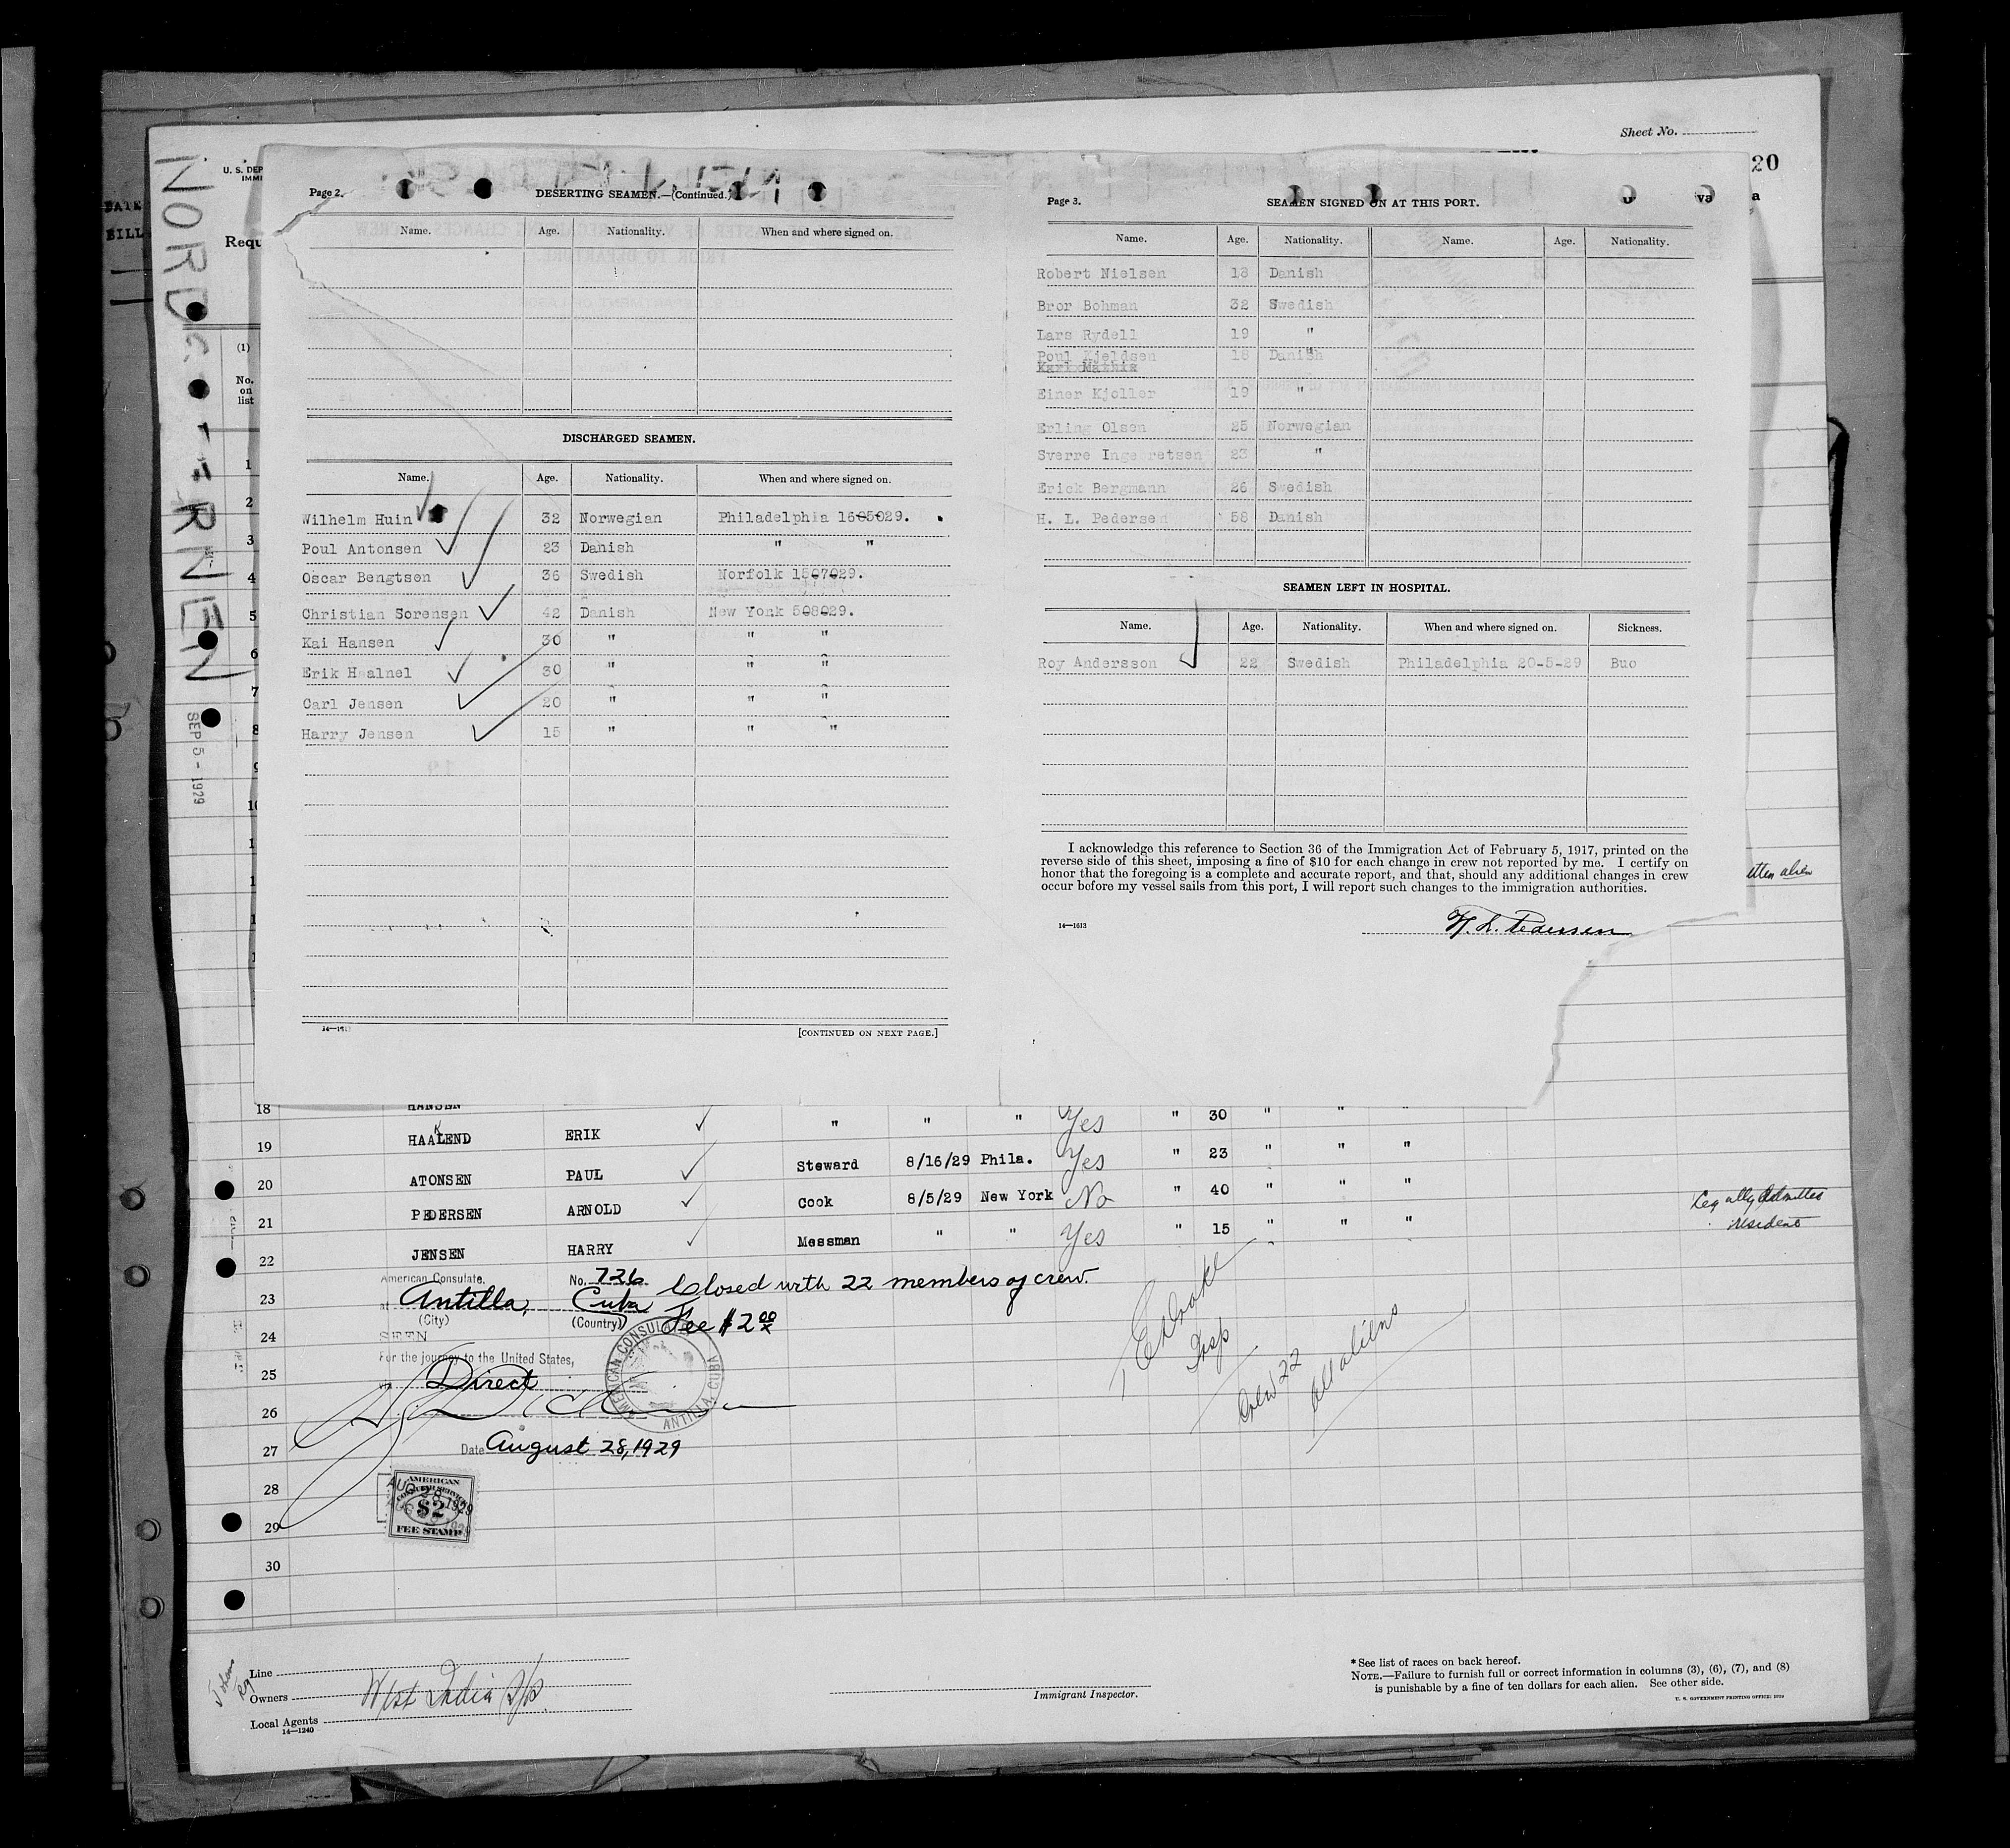 Sheet No.
20
U. S. DEP
IMMI
DATE
BILL
Requ
a
NORD
RNEN
SEP 5 - 1929
(1)
No.
on
list
1
2
3
4
5
6
7
8
Page 2.
DESERTING SEAMEN.—(Continued.)
Name. Age. Nationality. When and where signed on.
DISCHARGED SEAMEN.
Name. Age. Nationality. When and where signed on.
Wilhelm Huin 32 Norwegian Philadelphia 16-5-29.
Poul Antonsen 23 Danish " "
Oscar Bengtsen 36 Swedish Norfolk 15-7-29.
Christian Sorensen 42 Danish New York 5-8-29.
Kai Hansen 30 " " "
Erik Haalnel 30 " " "
Carl Jensen 20 " " "
Harry Jensen 15 " " "
[CONTINUED ON NEXT PAGE.]
Page 3.
SEAMEN SIGNED ON AT THIS PORT.
Name. Age. Nationality. Name. Age. Nationality.
Robert Nielsen 18 Danish
Bror Bohman 32 Swedish
Lars Rydell 19 "
Poul Kjeldsen 18 Danish
Karl Mathis
Einer Kjoller 19 "
Erling Olsen 25 Norwegian
Sverre Inge retsen 23 "
Erick Bergmann 26 Swedish
H. L. Pedersen 58 Danish
SEAMEN LEFT IN HOSPITAL.
Name. Age. Nationality. When and where signed on. Sickness.
Roy Andersson 22 Swedish Philadelphia 20-5-29 Buo
I acknowledge this reference to Section 36 of the Immigration Act of February 5, 1917, printed on the
reverse side of this sheet, imposing a fine of $10 for each change in crew not reported by me. I certify on
honor that the foregoing is a complete and accurate report, and that, should any additional changes in crew
occur before my vessel sails from this port, I will report such changes to the immigration authorities.
14—1613
H. L. Pedersen
alien
18 HANSEN " " " Yes " 30 " " "
19 HAALEND ERIK
Steward 8/16/29 Phila. Yes " 23 " " "
20 ATONSEN PAUL
Cook 8/5/29 New York No " 40 " " "
21 PEDERSEN ARNOLD
Legally admitted
resident
Messman " " Yes " 15 " " "
22 JENSEN HARRY
American Consulate, No. 726 Closed with 22 members of crew.
23 at Antilla, Cuba Fee $2 00
(City) (Country)
24 SEEN
For the journey to the United States,
25 Direct
AMERICAN CONSULA
ANTILLA, CUBA
26
27 Date August 28, 1929
28
29
30
AMERICAN
CONSULAR SERVICE
$2
FEE STAMP
AUG 28 1929
Insp
Crew 22
all aliens
Line
Owners West India S/S
Local Agents
14—1240
Immigrant Inspector.
* See list of races on back hereof.
NOTE.—Failure to furnish full or correct information in columns (3), (6), (7), and (8)
is punishable by a fine of ten dollars for each alien. See other side.
U. S. GOVERNMENT PRINTING OFFICE: 1929